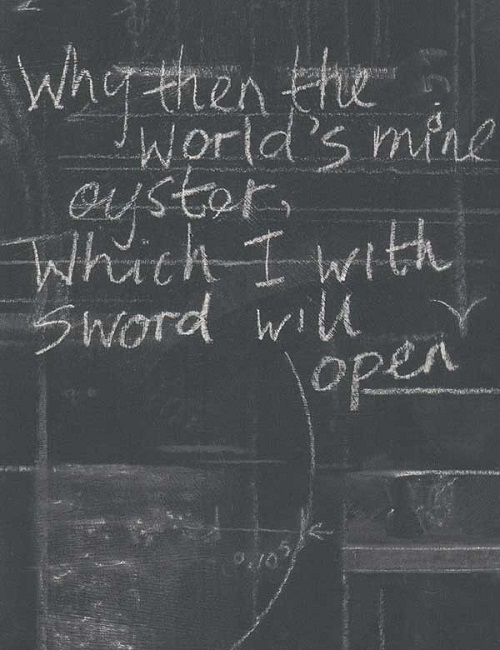 Why then the
world's mine
oyster,
Which I with
sword will
open